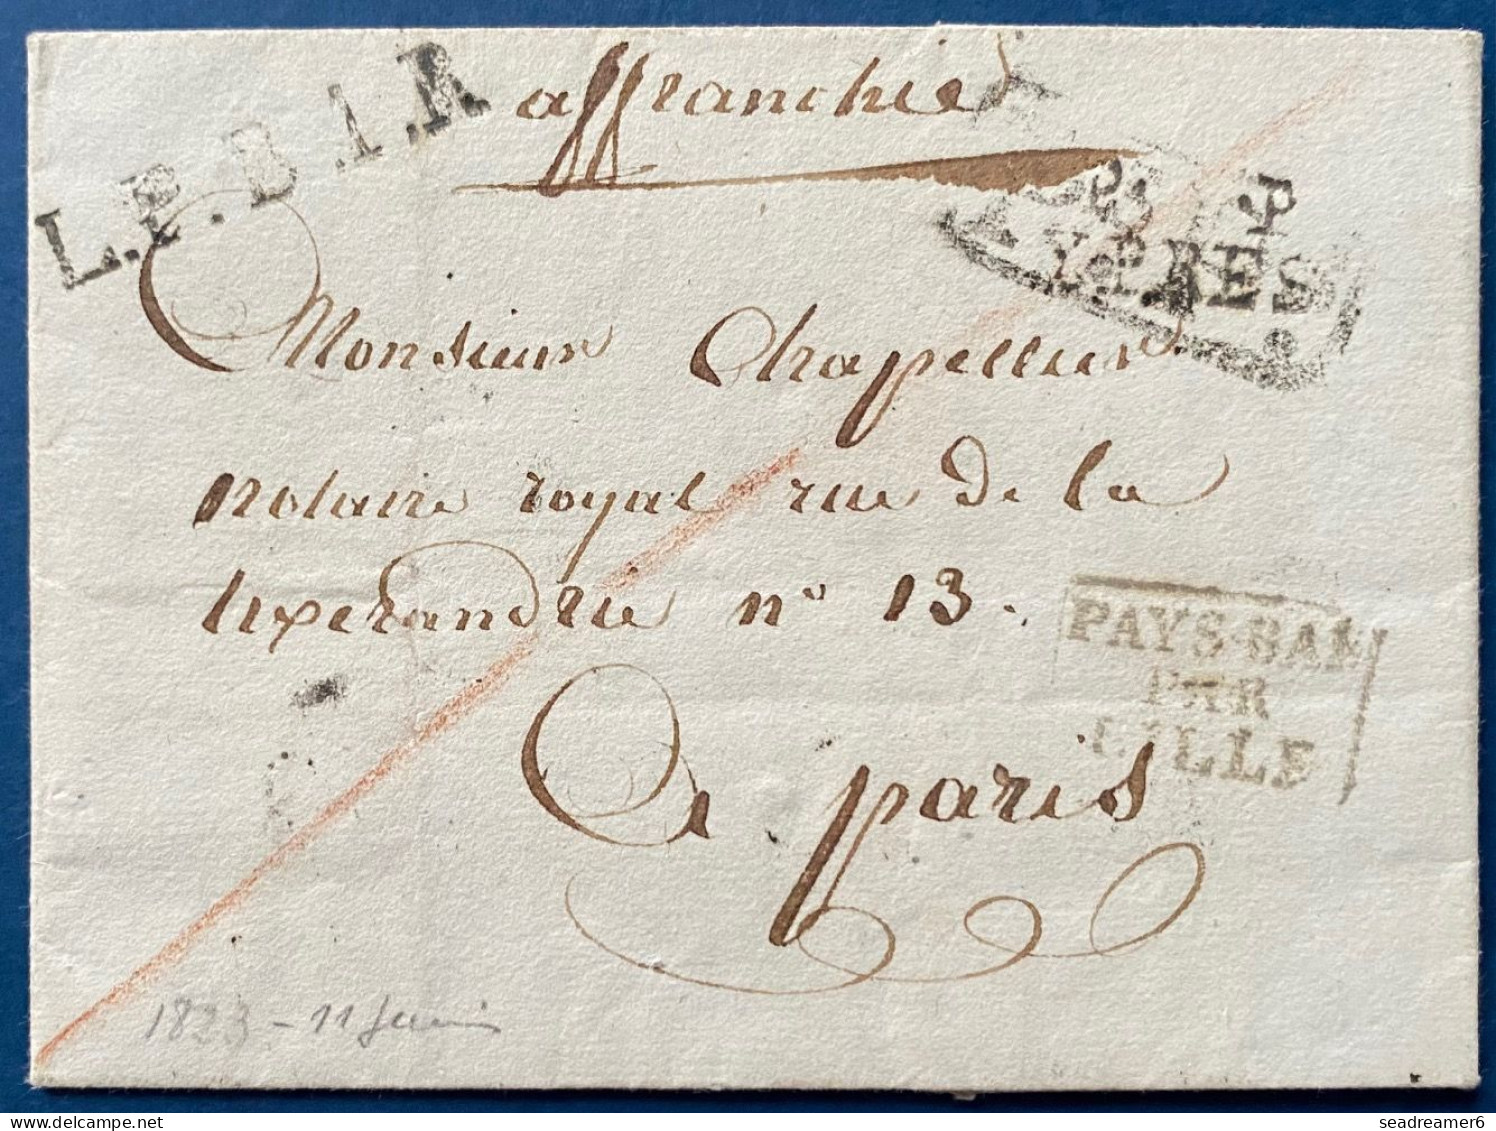 affranchie
L.P.B.1.R
P.P.
YPRES
Monsieur Chapellier
notaire royal rue de la
tixerandrie n° 13.
PAYS-BAS
PAR
LILLE
A paris
1823 - 11 Juin
seadreamer6
© delcampe.net